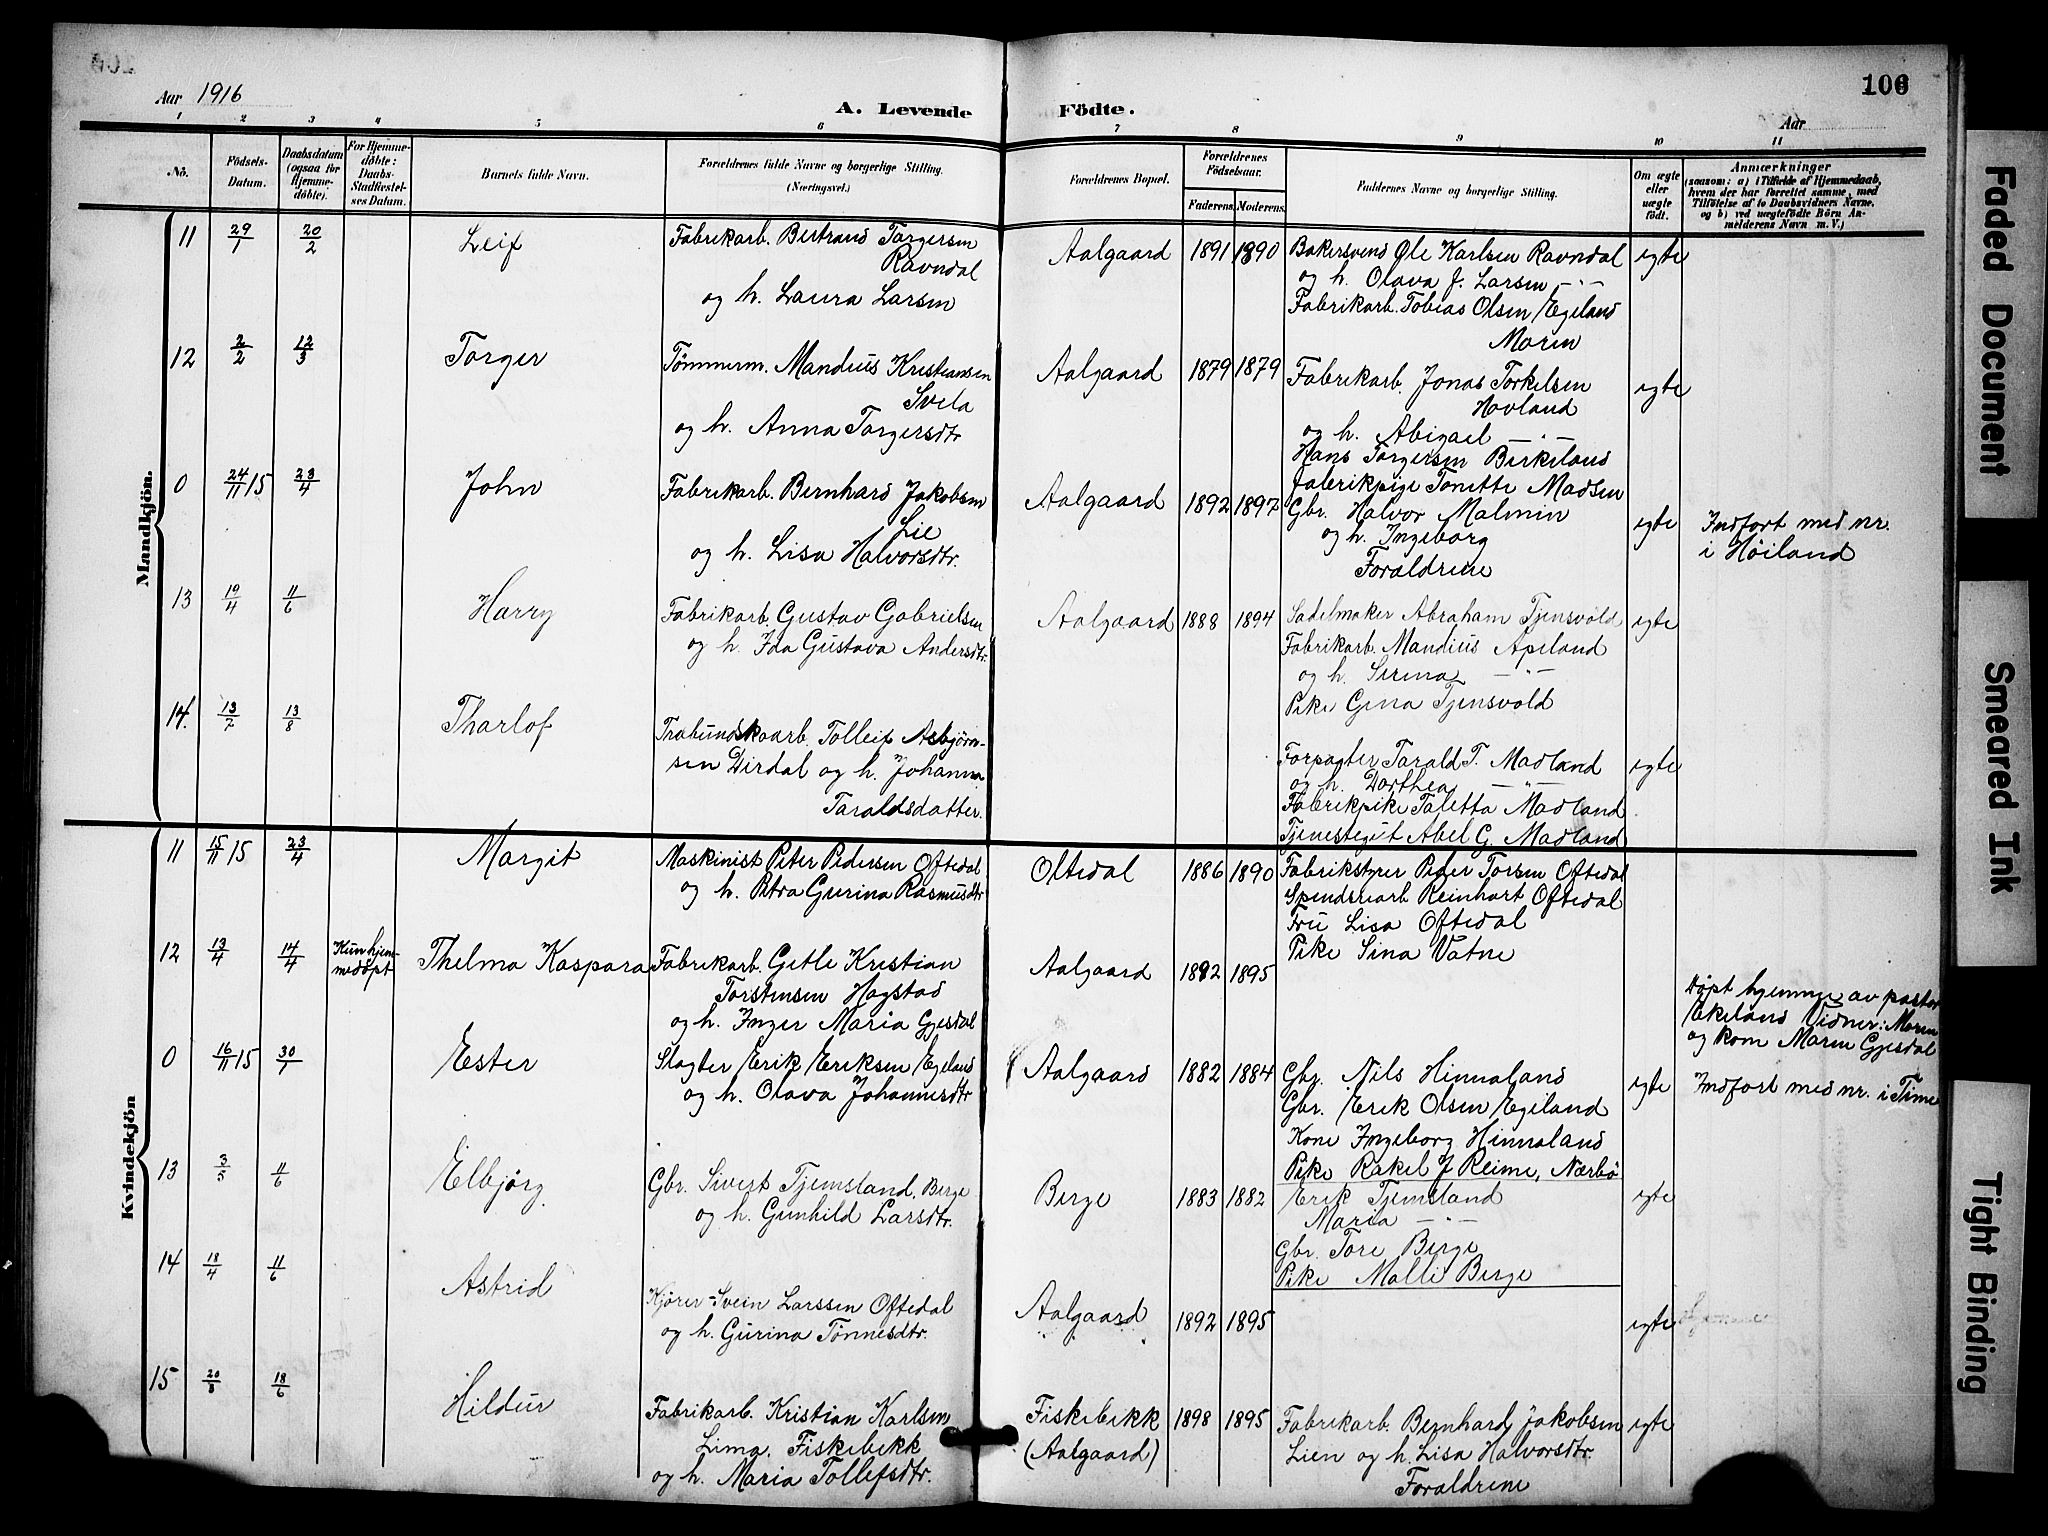 106
Aar 1916
A. Levende Födte.
Aar
1 2 3 4 5 6 7 8 9 10 11
No.
Födsels-Datum.
Daabsdatum (ogsaa for Hjemme-døbte).
For Hjemme-døbte: Daabs-Stadfæstel-ses Datum.
Barnets fulde Navn.
Forældrenes fulde Navne og borgerlige Stilling.
(Næringsvei.)
Forældrenes Bopæl.
Forældrenes Fødselsaar.
Faderens. Moderens.
Faddernes Navne og borgerlige Stilling.
Om ægte eller uægte født.
Anmærkninger
(saasom: a) i Tilfælde af Hjemmedaab, hvem der har forrettet samme, med Tilföielse af to Daabsvidners Navne, og b) ved uægtefödte Börn An-melderens Navn m. V.)
Mandkjön.
11 29/1 20/2 Leif Fabrikarb. Bertrand Torgersen Ravndal og h. Laura Larsen Aalgaard 1891 1890 Bakersvend Ole Karlsen Ravndal
og h. Olava J. Larsen -"-
Fabrikarb. Tobias Olsen Egeland
Moren
egte
12 2/2 12/3 Torger Tømmerm. Mandius Kristiansen
Svela
og h. Anna Torgersdtr Aalgaard 1879 1879 Fabrikarb. Jonas Torkelsen
Hovland
og h. Abigael -"-
Hans Torgersen Birkeland
Fabrikpige Tonette Madsen
egte
0 24/11 15 23/4 John Fabrikarb. Bernhard Jakobsen
Lie
og h. Lisa Halvorsdtr. Aalgaard 1892 1897 Gbr. Halvor Malmin
og h. Ingeborg
Foraldrene
egte Indført med nr.
i Høiland
13 19/4 11/6 Harry Fabrikarb. Gustav Gabrielsen
og h. Ida Gustava Andersdtr. Aalgaard 1888 1894 Sadelmaker Abraham Tjensvold
Fabrikarb. Mandius Apeland
og h. Serina -"-
Pike Gina Tjensvold
egte
14. 13/7 13/8 Tharlof Tolleif Asbjørn-
sen Dirdal og h. Johanna
Taraldsdatter. Forpagter Tarald T. Madland
og h. Dorthea -"-
Fabrikpike Taletta Madland
Tjenestegut Abel G. Madland
egte
Kvindekjön
11 15/11 15 23/4 Margit Maskinist Peter Pedersen Oftedal
og h. Petra Gurina Rasmusdtr Oltedal 1886 1890 Fabrikstyrer Peder Torsen Oftedal
Reinhart Oftedal
Fru Lisa Oftedal
Pike Sina Vatne
12 13/4 14/4 Kun hjem-
medøpt Thelma Kaspara Fabrikarb. Getle Kristian
Torstensen Hogstad
og h. Inger Maria Gjesdal Aalgaard 1892 1895 Døpt hjemme av pastor
Ekeland Vidner: Moren
og kone Maren Gjesdal
0 16/11 15 30/1 Ester Slagter Erik Eriksen Egeland
og h. Olava Johannesdtr Aalgaard 1882 1884 Gbr. Nils Hinnaland
Gbr. Erik Olsen Egeland
Kone Ingeborg Hinnaland
Pike Rakel J Reime, Nærbö
egte Indført med nr. i Time
13 3/5 11/6 Elbjörg Gbr. Sivert Tjemsland, Berge
og h. Gunhild Larsdtr. Berge 1883 1882 Erik Tjemsland
Maria -"-
Gbr. Tore Berge
Pike Malli Berge
egte
14 18/4 11/6 Astrid Kjörer Svein Larssen Oftedal
og h. Gurina Tønnesdtr. Aalgaard 1892 1895 egte
15 20/3 18/6 Hildur Fabrikarb. Kristian Karlsen
Lima. Fiskebekk
og h. Maria Tollefsdtr. Fiskebekk
(Aalgaard) 1898 1895 Fabrikarb. Bernhard Jakobsen
Lien og h. Lisa Halvorsdtr.
Foraldrene
egte
Faded Document
Smeared Ink
Tight Binding